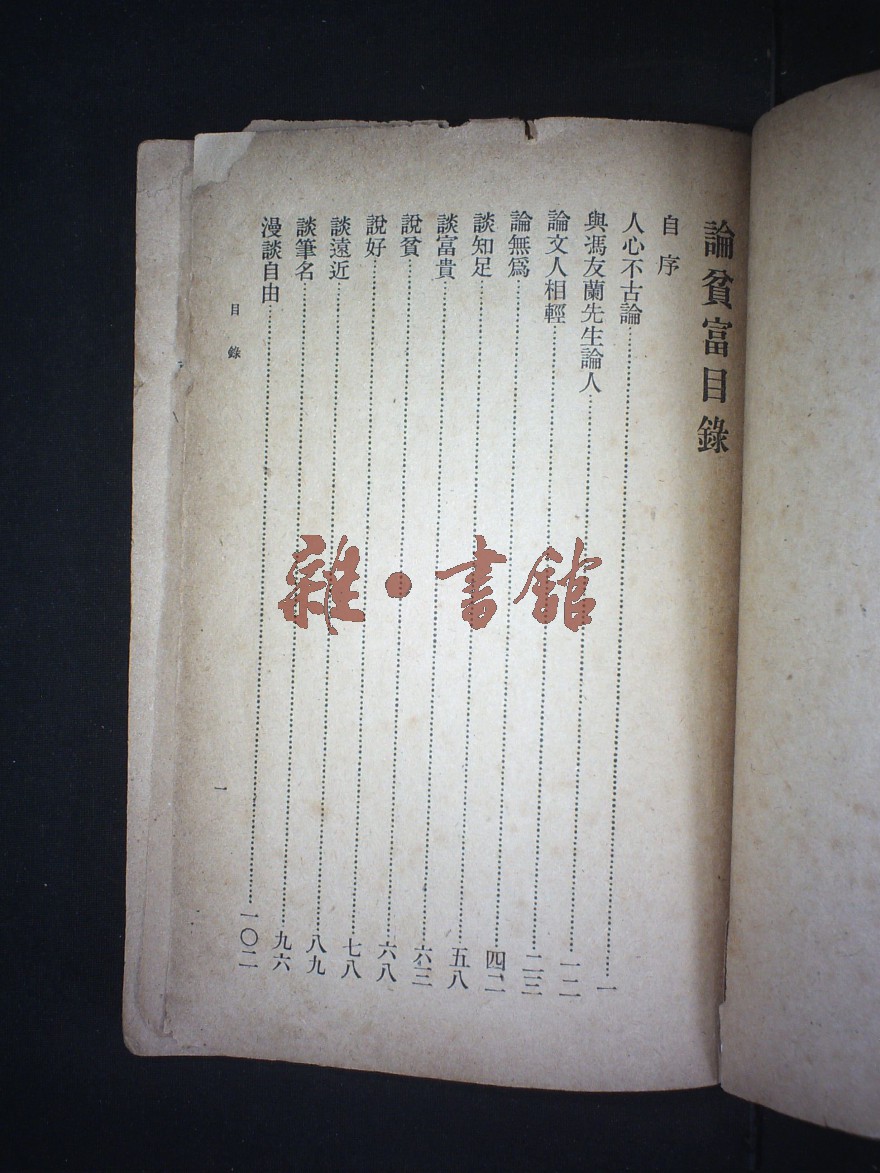 論貧富目錄
自序
人心不古論……一
與馮友蘭先生論人……一二
論文人相輕……二三
論無爲……四二
談知足……五八
談富貴……六三
說貧……六八
說好……七八
談遠近……八九
談筆名……九六
漫談自由……一〇二
目錄
一
雜·書館